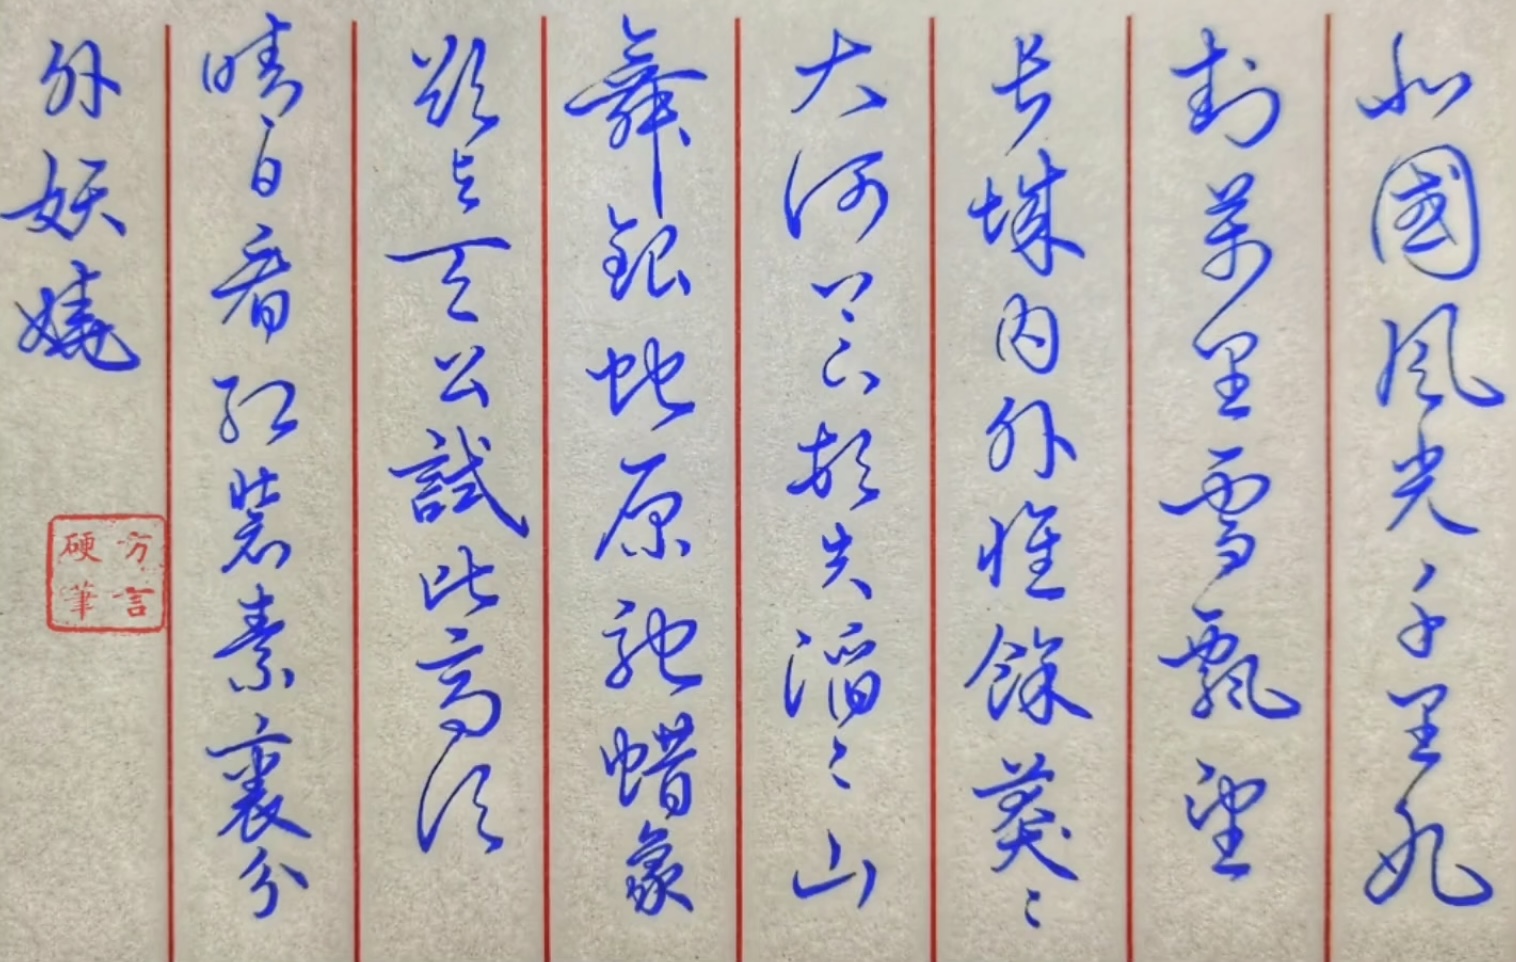 北國風光千里冰
封萬里雪飄望
长城内外惟餘莽〻
大河上下頓失滔〻山
舞銀蛇原馳蜡象
欲与天公試比高須
晴日看红裝素裹分
外妖嬈
方言
硬筆